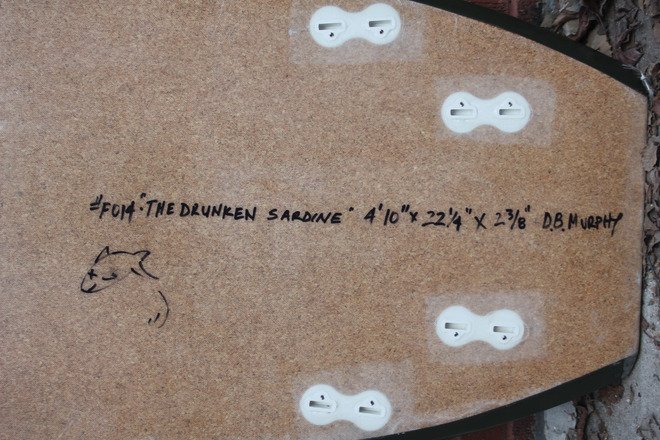 #F014 "THE DRUNKEN SARDINE" 4'10" x 22 1/4" x 2 3/8" D.B. MURPHY